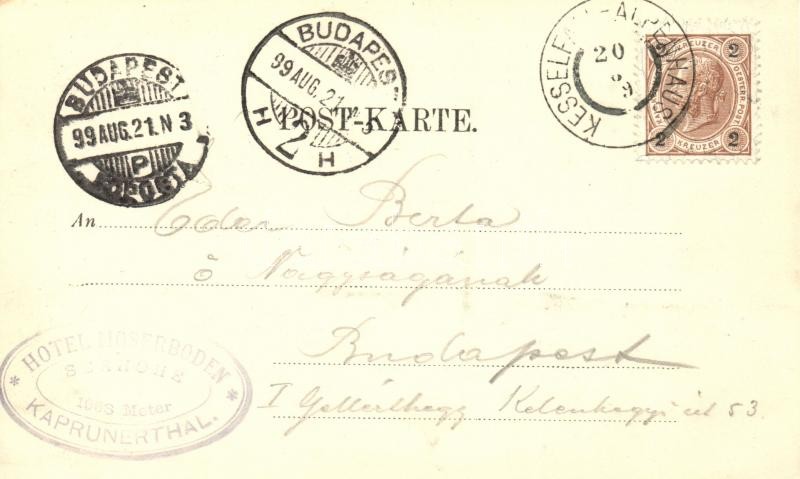 BUDAPEST
99 AUG. 21. N 3
P
BUDAPES
99 AUG. 21.
H 2 H
KESSELFALL-ALPENHAUS
20
2 KREUZER 2
OESTERR. POST
2 KREUZER 2
POST-KARTE.
An Eder Berta
ő Nagyságának
Budapest
I Gellérthegy Kelenhegyi út 53.
* HOTEL MOSERBODEN *
SEEHÖHE
1968 Meter
KAPRUNERTHAL.